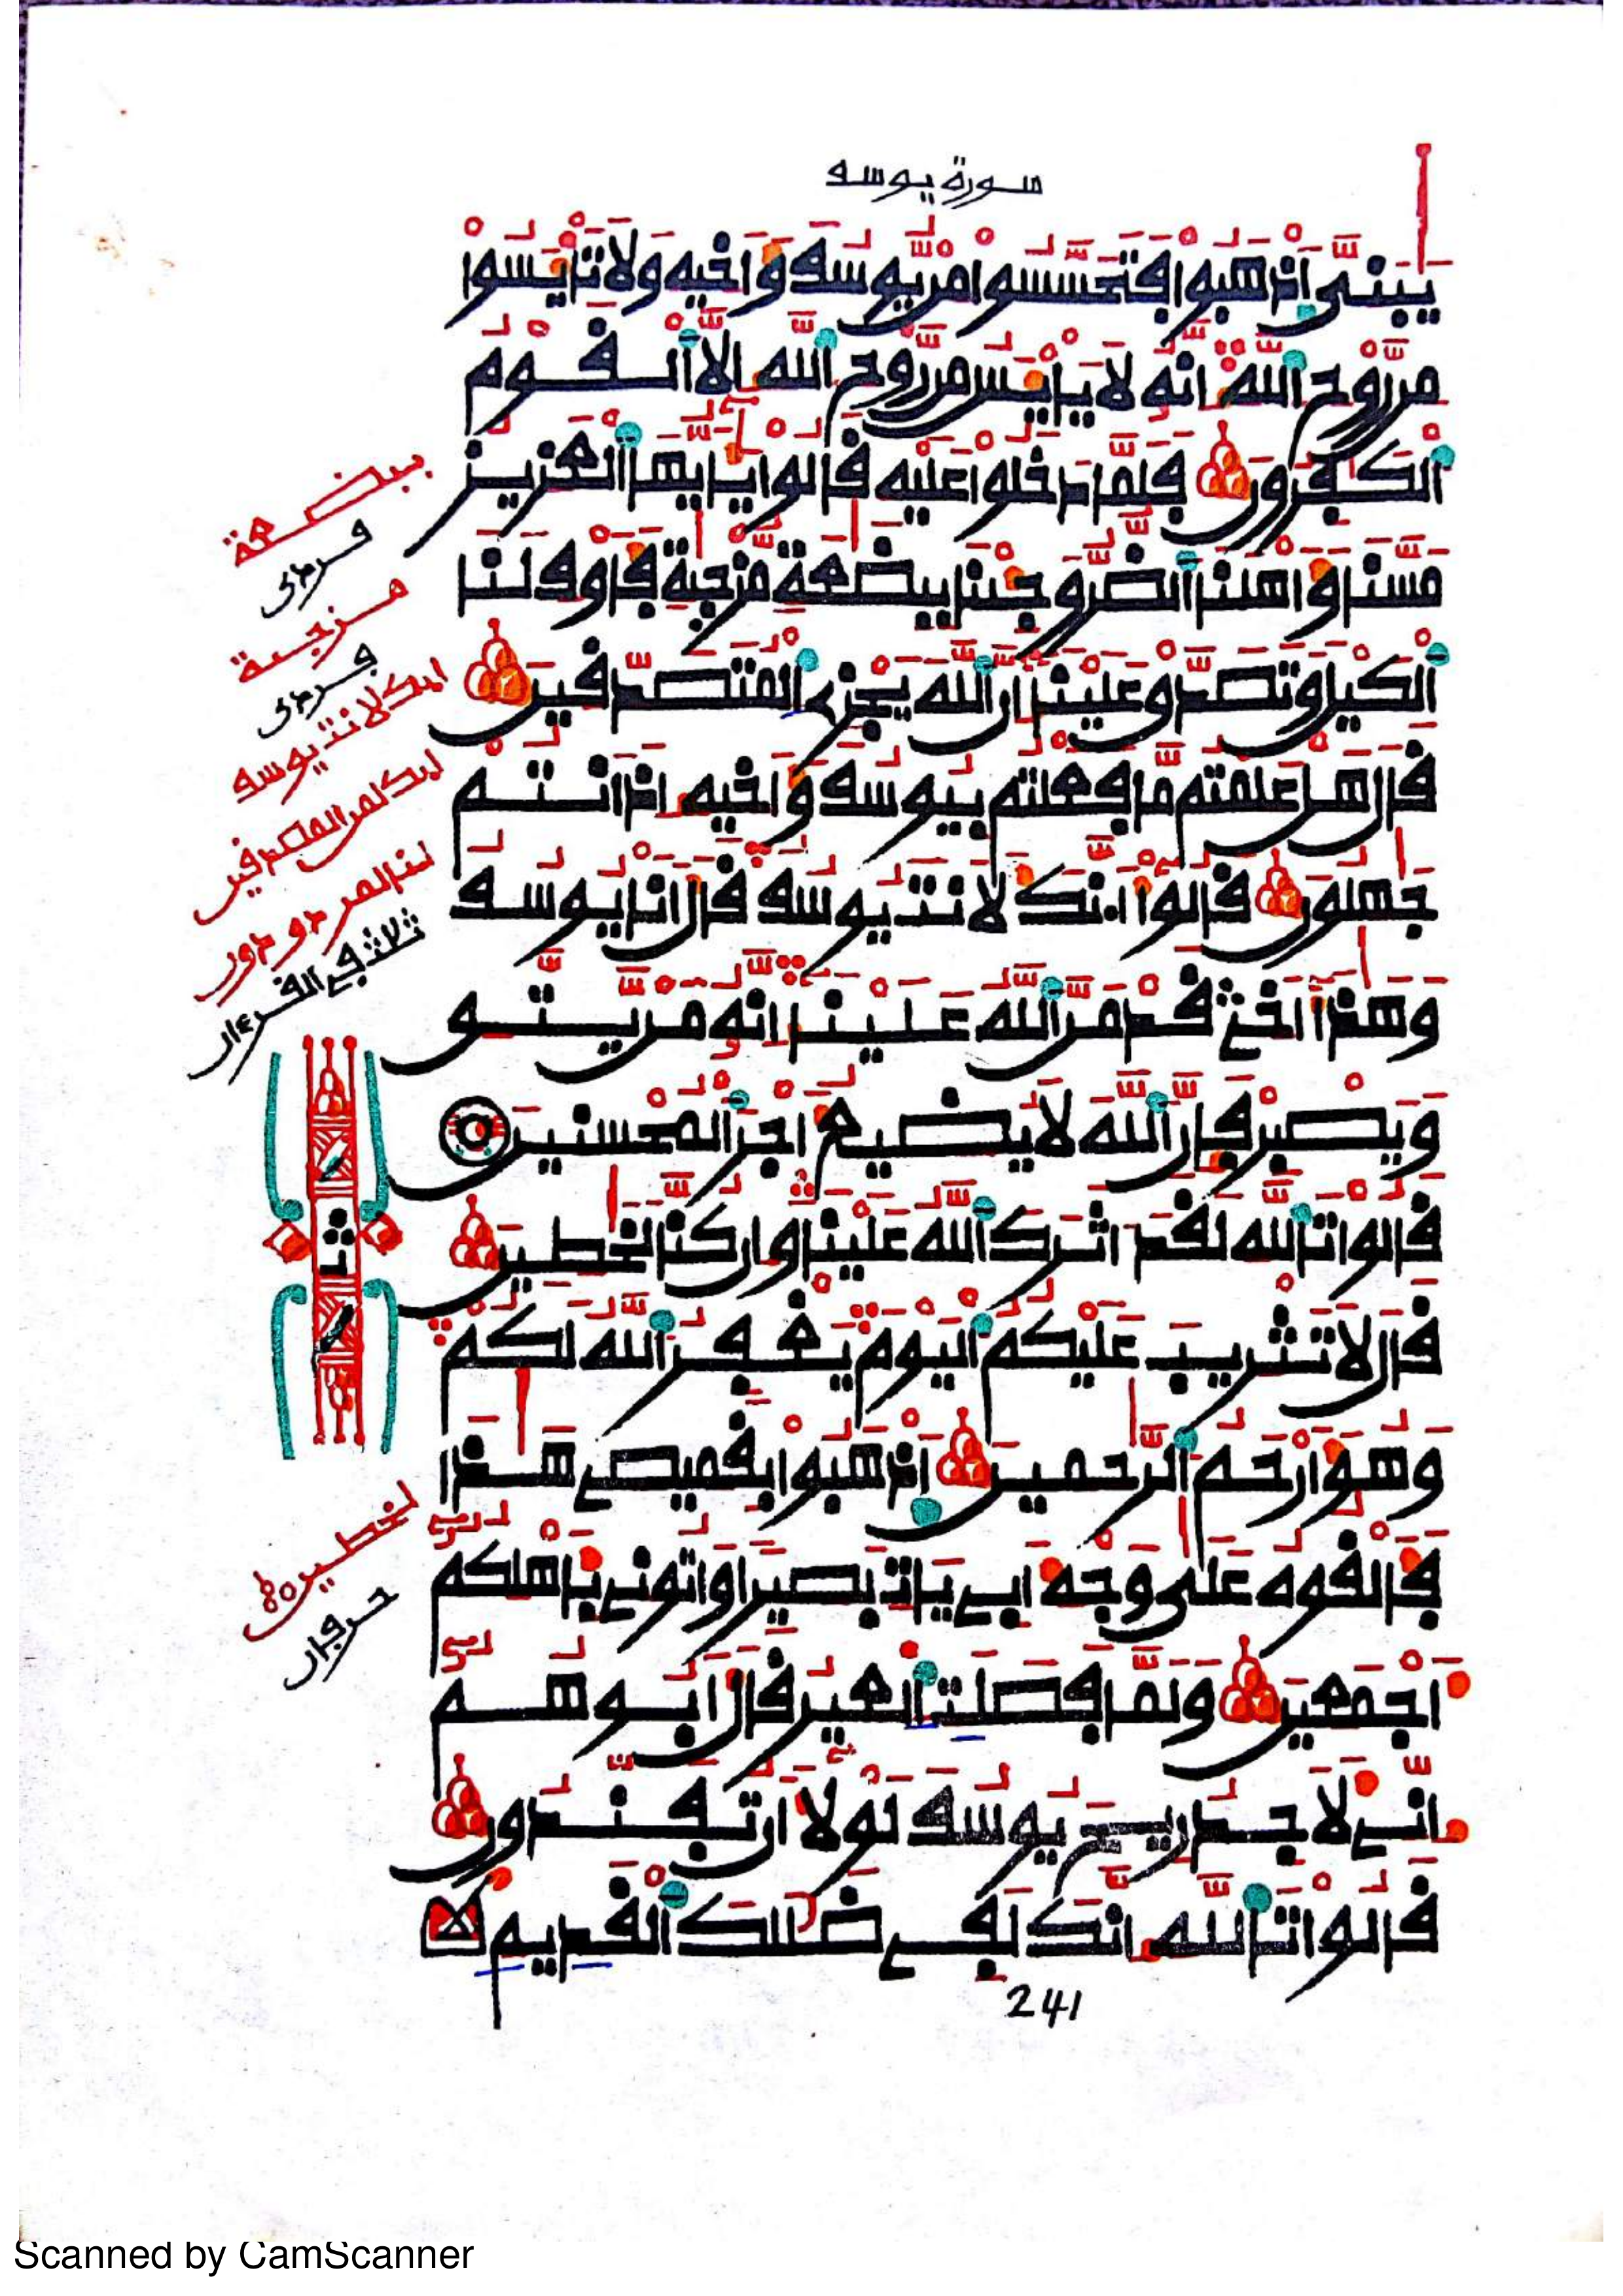 سورة يوسف
يبنى اذهبوا فتحسسوا من يوسف واخيه ولا تايسوا
من روح الله انه لا يايس من روح الله الا القوم
الكفرون فلما دخلوا عليه قالوا يايها العزيز
مسنا واهلنا الضر وجينا ببضعة مزجية فاوف لنا
الكيل وتصدق علينا ان الله يجزى المتصدقين
قال هل علمتم ما فعلتم بيوسف واخيه اذ انتم
جهلون قالوا انك لانت يوسف قال انا يوسف
وهذا اخى قد من الله علينا انه من يتق
ويصبر فان الله لا يضيع اجر المحسنين
قالوا تالله لقد اثرك الله علينا وان كنا لخطين
قال لا تثريب عليكم اليوم يغفر الله لكم
وهو ارحم الرحمين اذهبوا بقميصى هذا
فالقوه على وجه ابى يات بصيرا واتونى باهلكم
اجمعين ولما فصلت العير قال ابوهم
انى لاجد ريح يوسف لولا ان تفندون
قالوا تالله انك لفى ضللك القديم
241
ببضعة
فردى
مزجية
فردى
انك لانت يوسف
لمن المصدقين
لنا لمردودون
ثلاث فى القرءان
ثمن
لخطين
حرفان
Scanned by CamScanner